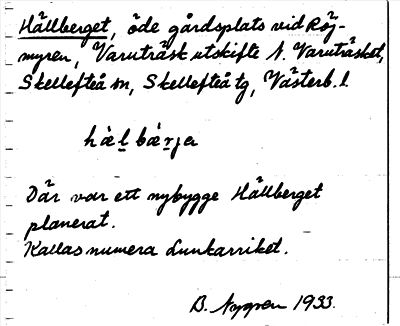 Hällberget, öde gårdsplats vid Röj-
myren, Varuträsk utskifte N. Varuträsket,
Skellefteå sn, Skellefteå tg, Västerb. l.
hèl bæ̀rja
Där var ett nybygge Hällberget
planerat.
Kallas numera Lunkarriket.
B. Nygren 1933.